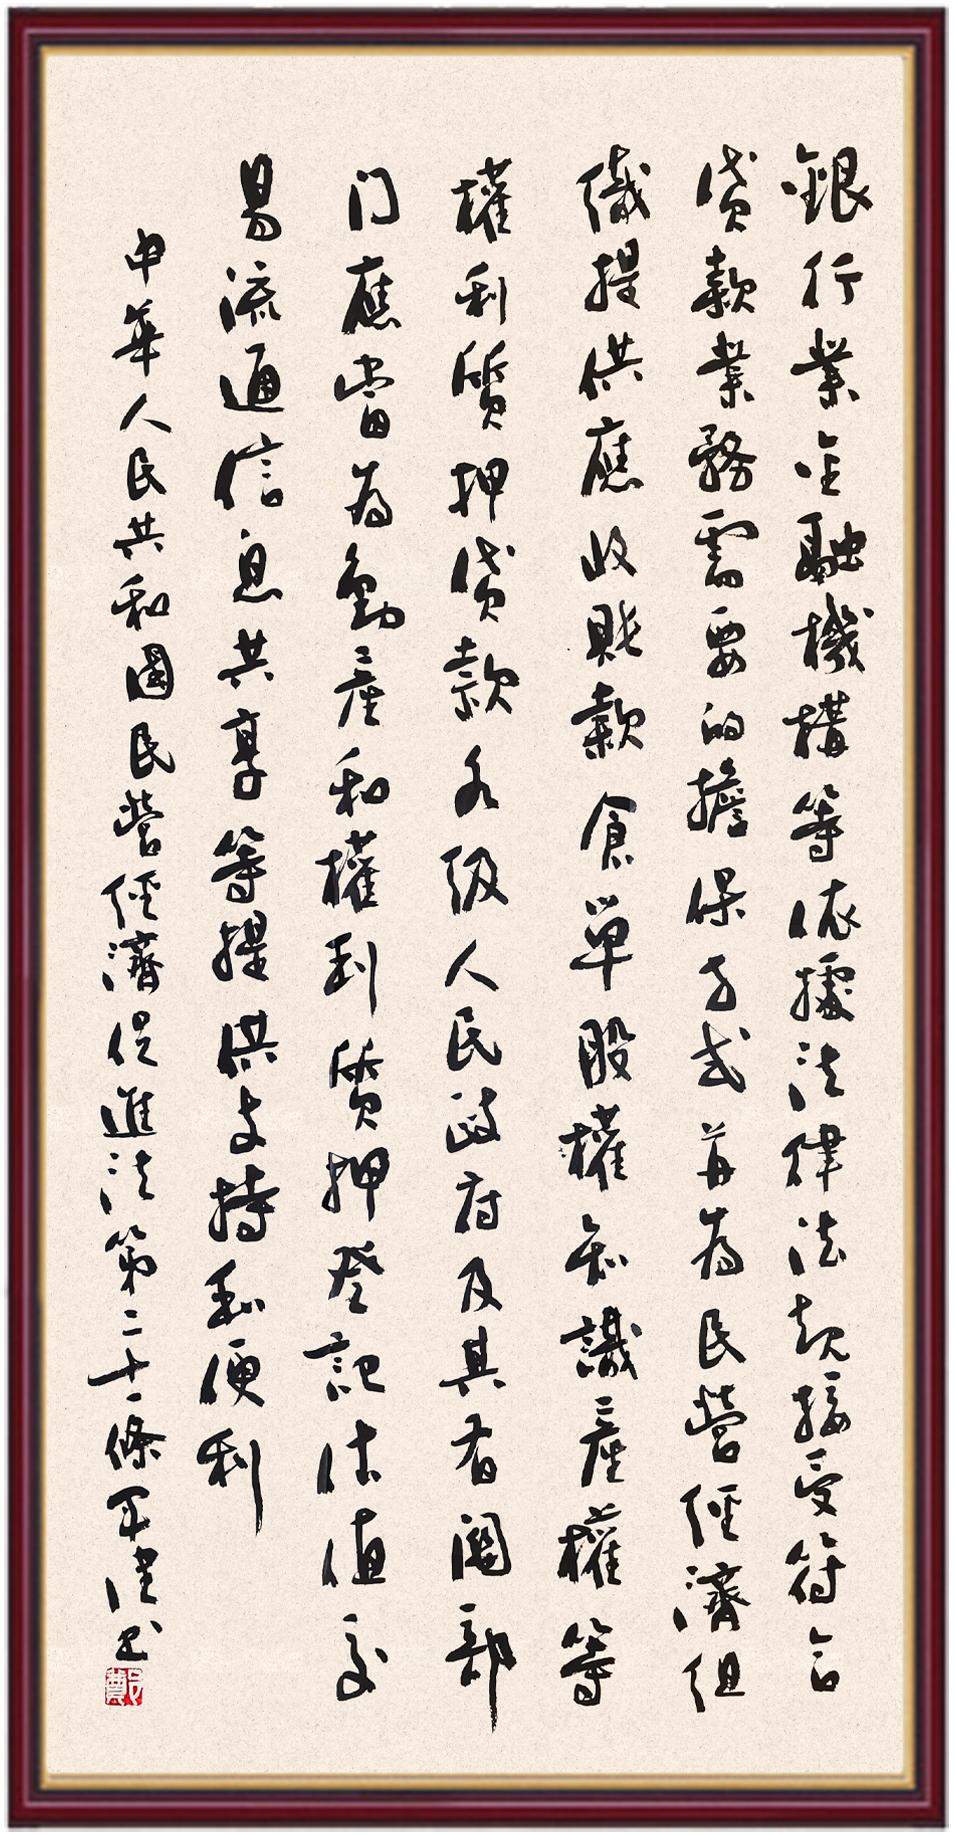 銀行業金融機構等依據法律法規接受符合
貸款業務需要的擔保方式并為民營經濟組
織提供應收賬款倉單股權知識產權等
權利質押貸款各級人民政府及其有關部
门應當為動產和權利質押登記估值交
易流通信息共享等提供支持和便利
中華人民共和國民營經濟促進法第二十一條 书